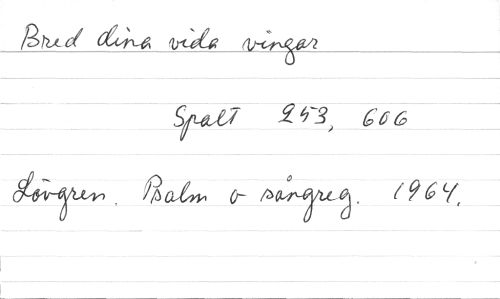 Bred dina vida vingar
Spalt 253, 606
Lövgren. Psalm o sångreg. 1964.